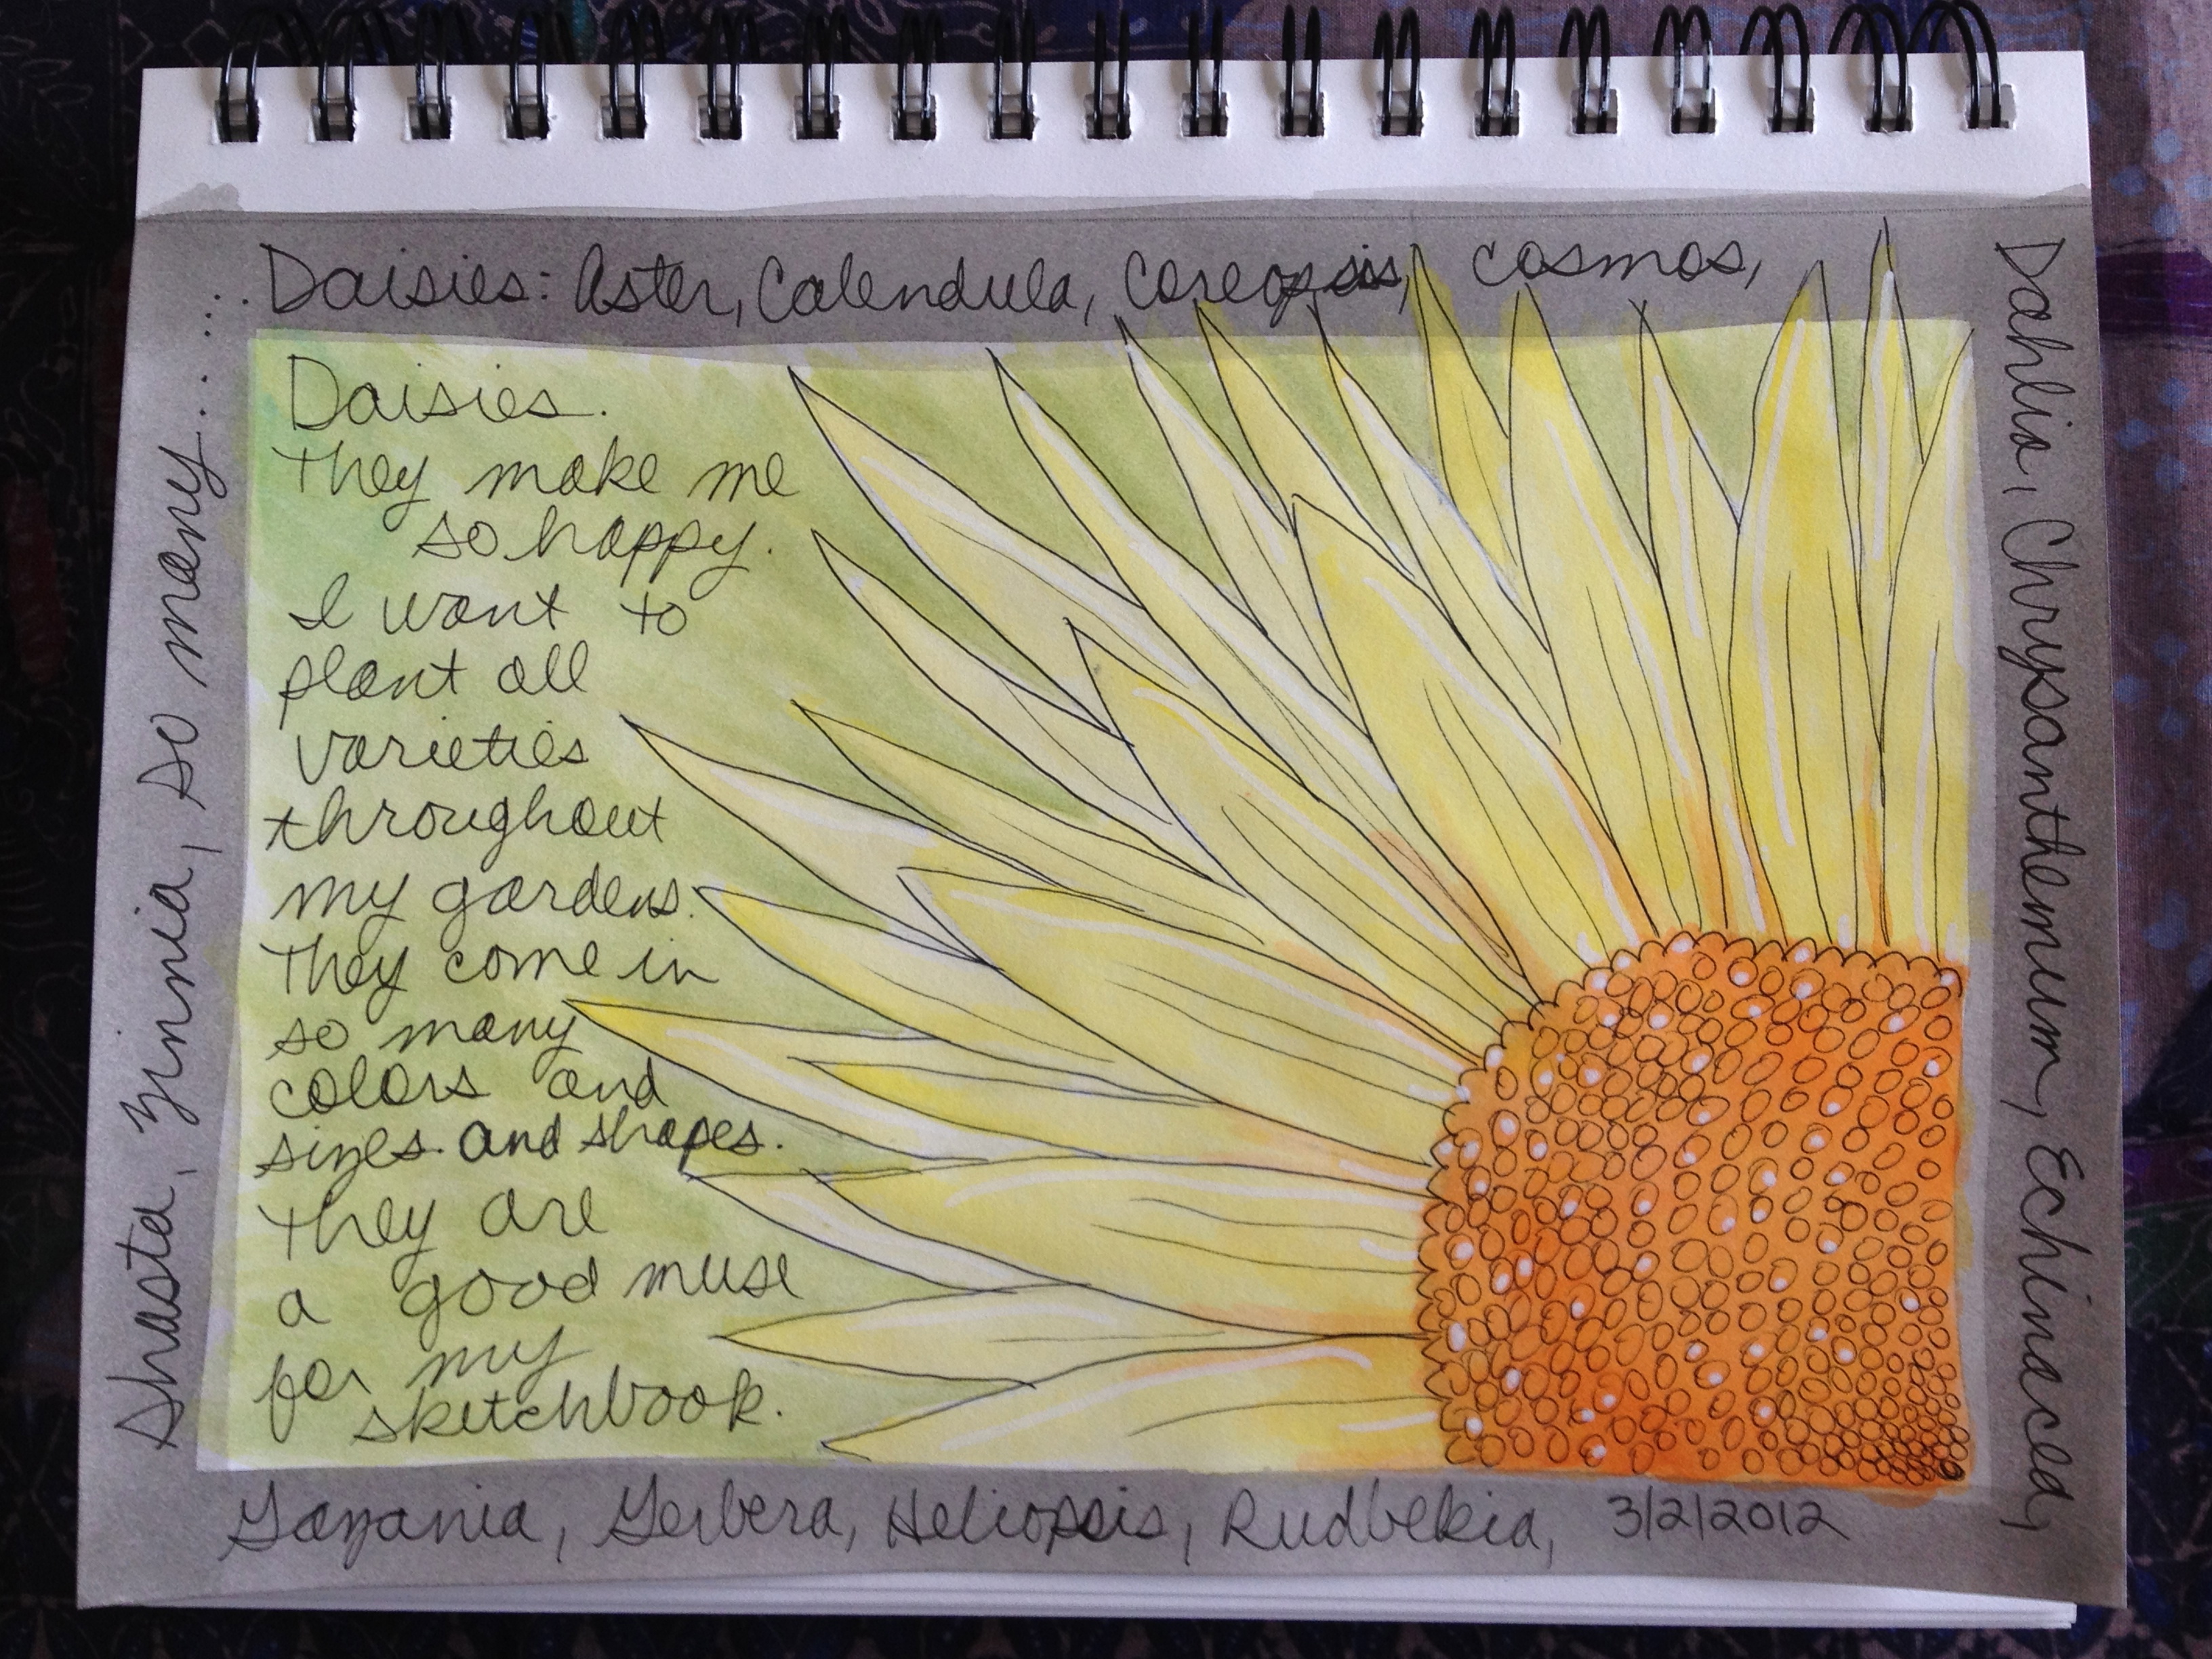 Daisies: Aster, Calendula, Coreopsis, Cosmos,
Dahlia, Chrysanthemum, Echinacea,
Gazania, Gerbera, Heliopsis, Rudbekia, 3/2/2012
Shasta, Zinnia, so many......
Daisies.
They make me
so happy.
I want to
plant all
varieties
throughout
my gardens.
They come in
so many
colors and
sizes. and shapes.
They are
a good muse
for my
sketchbook.